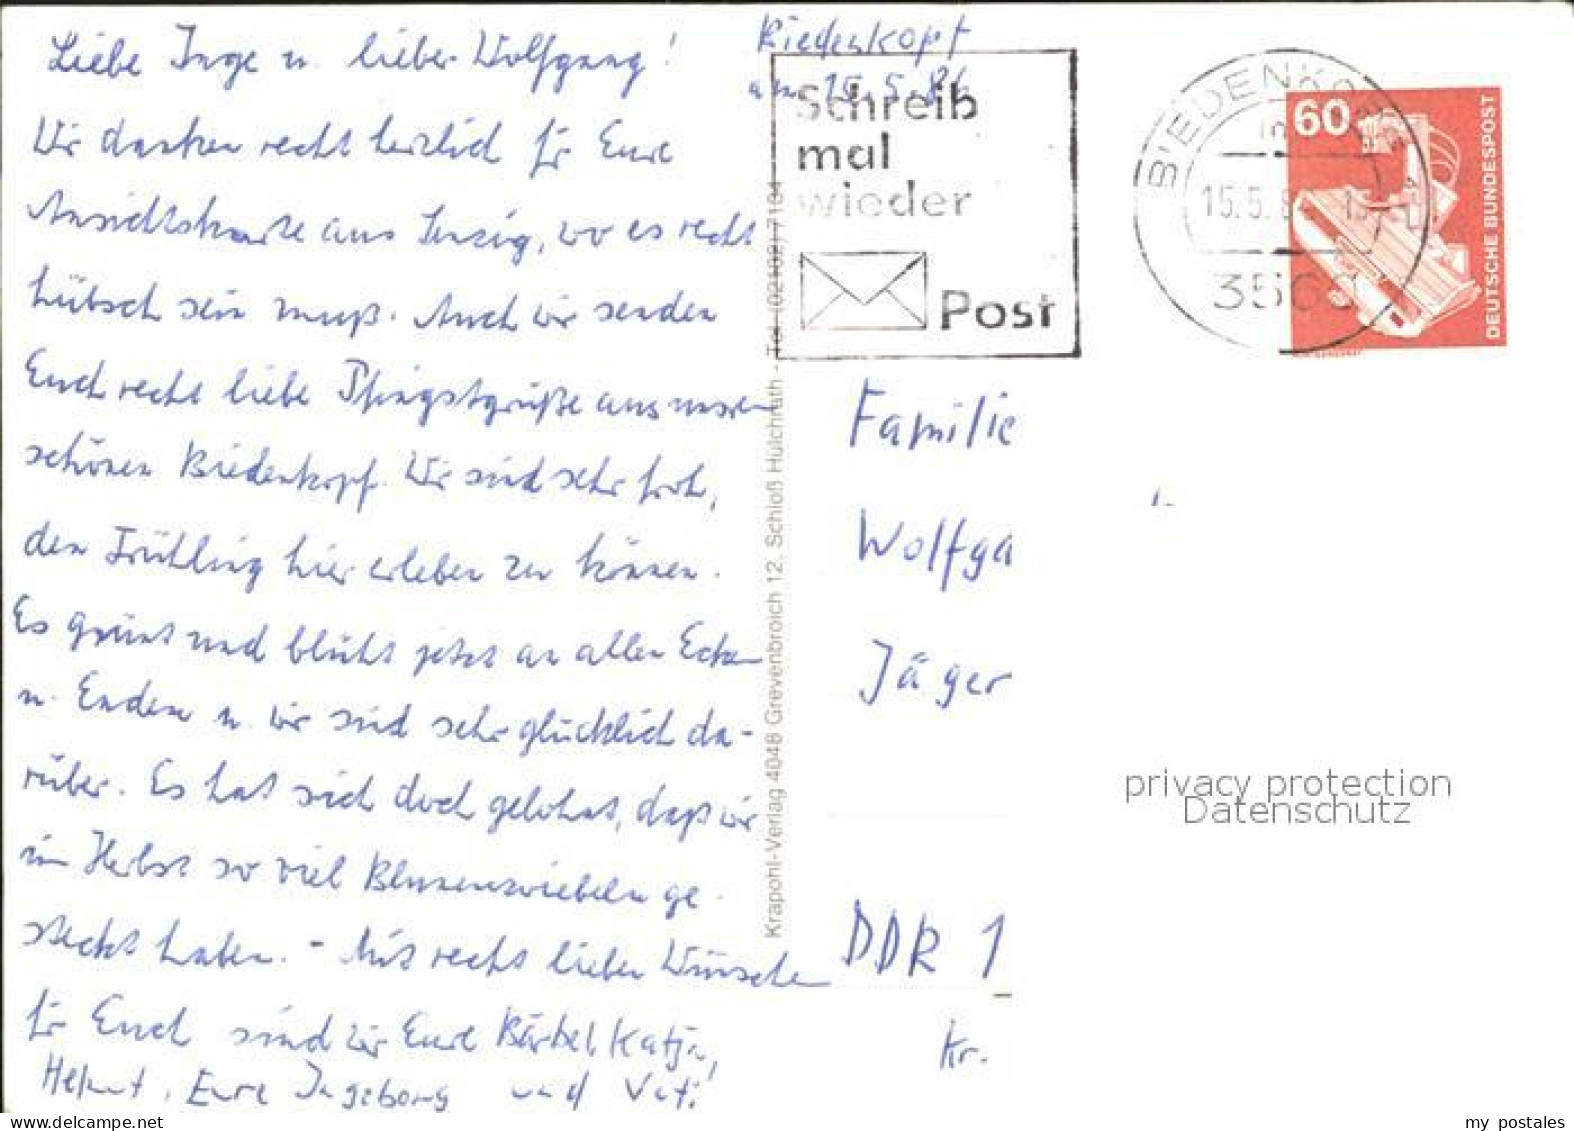 Liebe Inge u. lieber Wolfgang!
Wir danken recht herzlich für Eure
Ansichtskarte aus Leipzig, wo es recht
hübsch sein muß. Auch wir senden
Euch recht liebe Pfingstgrüße aus unserem
schönen Biedenkopf. Wir sind sehr froh,
den Frühling hier erleben zu können.
Es grünt und blüht jetzt an allen Ecken
u. Enden u. wir sind sehr glücklich da-
rüber. Es hat sich doch gelohnt, daß wir
im Herbst so viel Blumenzwiebeln ge-
steckt haben. - Mit recht lieben Wünschen
für Euch sind wir Eure Bärbel, Katja,
Helmut, Eure Ingeborg und Vati
Biedenkopf
am 15.5.86
Krapohl-Verlag 4048 Grevenbroich 12, Schloß Hülchrath - Tel. (02182) 7184
Schreib
mal
wieder
Post
BIEDENKOPF
15.5.8
3560
60
DEUTSCHE BUNDESPOST
Familie
Wolfga
Jäger
DDR 1
Kr.
privacy protection
Datenschutz
my postales
www.delcampe.net